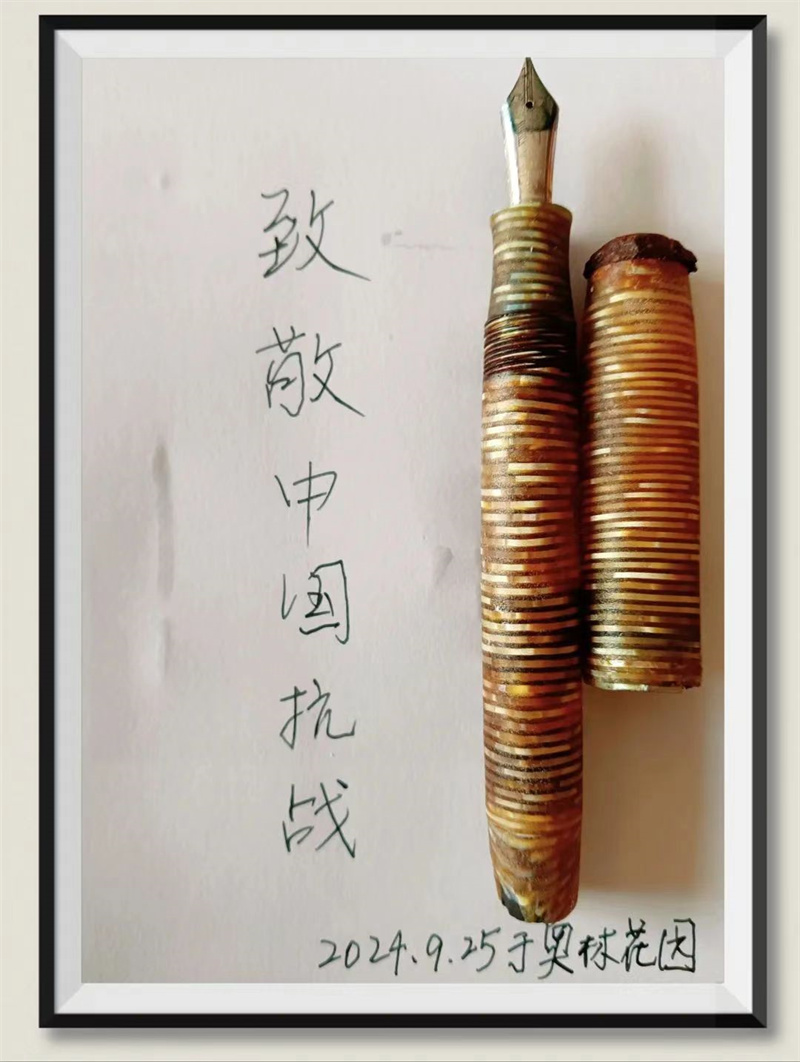 致敬中国抗战
2024.9.25于奥林花园